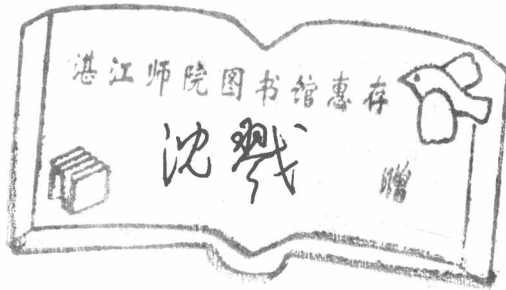 湛江师院图书馆惠存
沈戮
赠